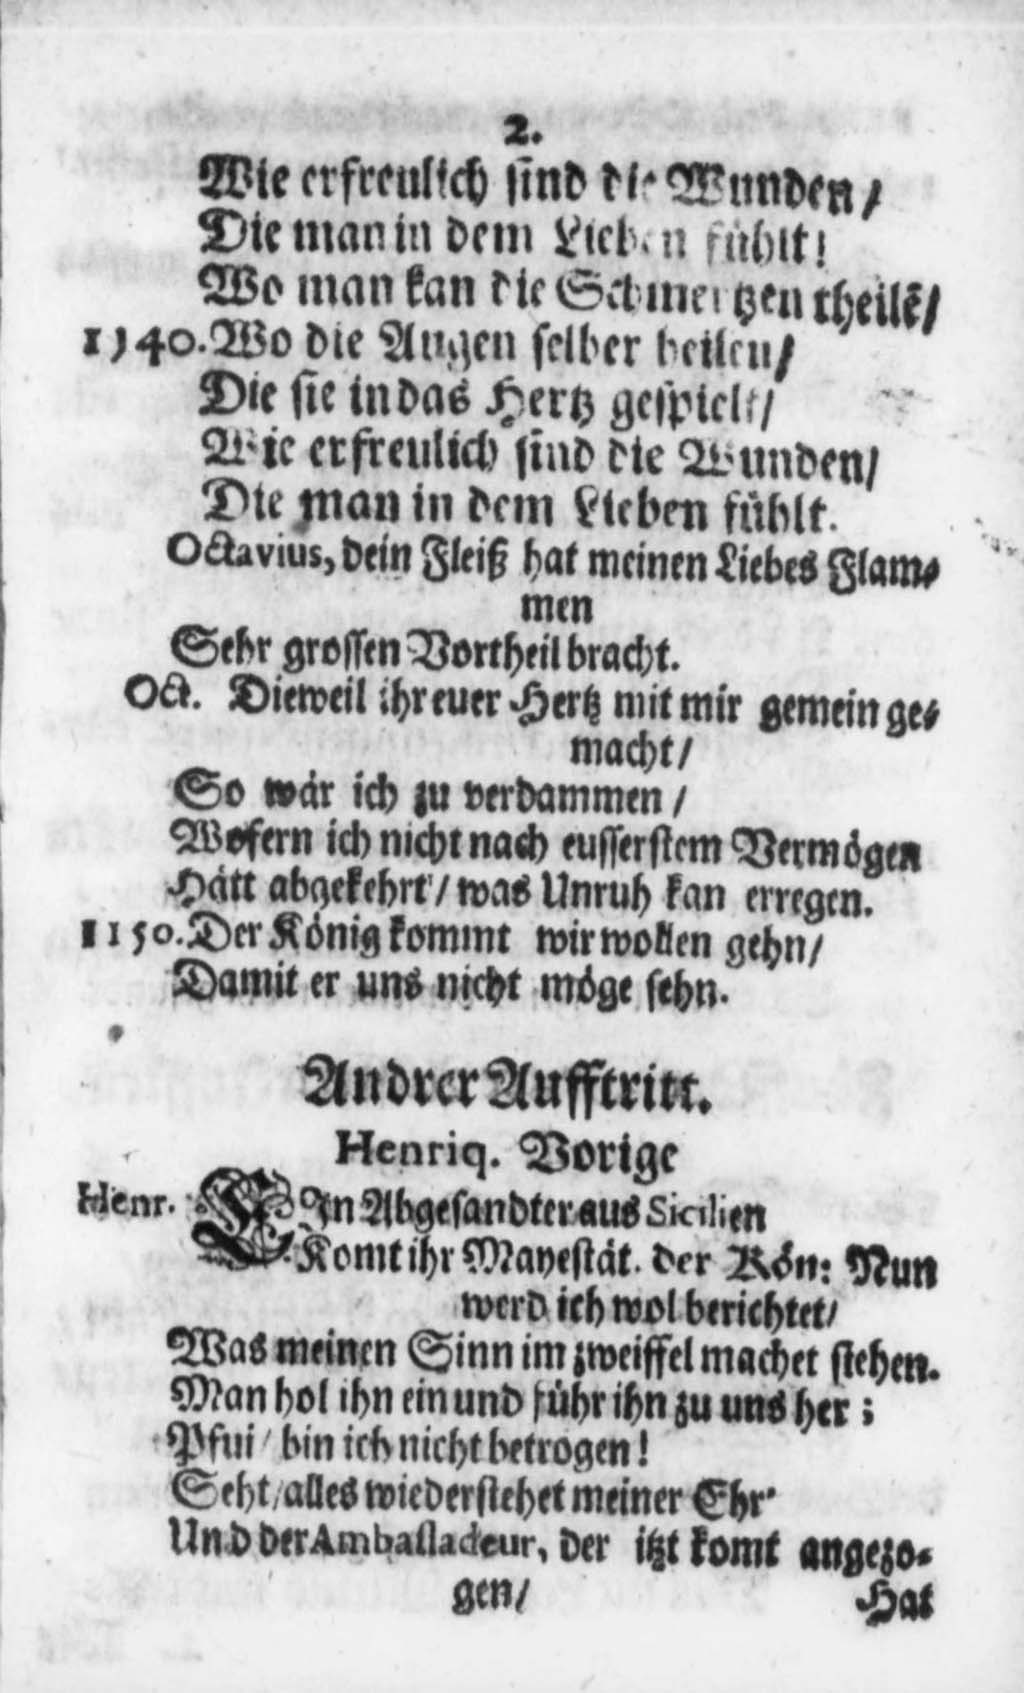 2.
Wie erfreulich sind die Wunden /
Die man in dem Lieben fühlt!
Wo man kan die Schmertzen theilē/
1140. Wo die Augen selber heilen/
Die sie in das Hertz gespielt/
Wie erfreulich sind die Wunden/
Die man in dem Lieben fühlt.
Octavius, dein Fleiß hat meinen Liebes Flam-
men
Sehr grossen Vortheil bracht.
Oct. Dieweil ihr euer Hertz mit mir gemein ge-
macht/
So wär ich zu verdammen /
Wofern ich nicht nach eusserstem Vermögen
Hätt abgekehrt / was Unruh kan erregen.
1150. Der König kommt wir wollen gehn/
Damit er uns nicht möge sehn.
Andrer Aufftritt.
Henriq. Vorige
Henr. EIn Abgesandter aus Sicilien
Komt ihr Mayestät. der Kön: Nun
werd ich wol berichtet/
Was meinen Sinn im zweiffel machet stehen.
Man hol ihn ein und führ ihn zu uns her;
Pfui / bin ich nicht betrogen!
Seht/ alles wiederstehet meiner Ehr
Und der Ambassadeur, der itzt komt angezo-
gen/
Hat